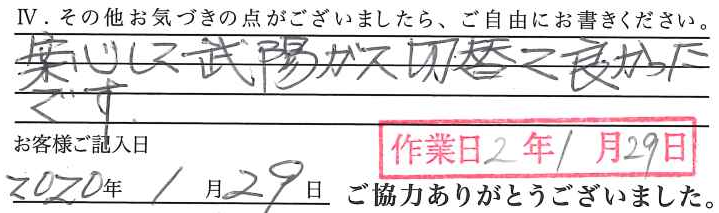 Ⅳ．その他お気づきの点がございましたら、ご自由にお書きください。
楽心して武陽ガス切替て良かった
です.
お客様ご記入日
作業日2年1月29日
2020年1月29日
ご協力ありがとうございました。